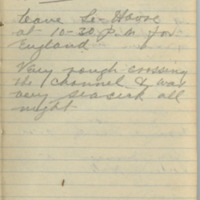 Leave Le-Havre
at 10-30 P.M for
England
Very rough crossing
the channel & was
very seasick all
night